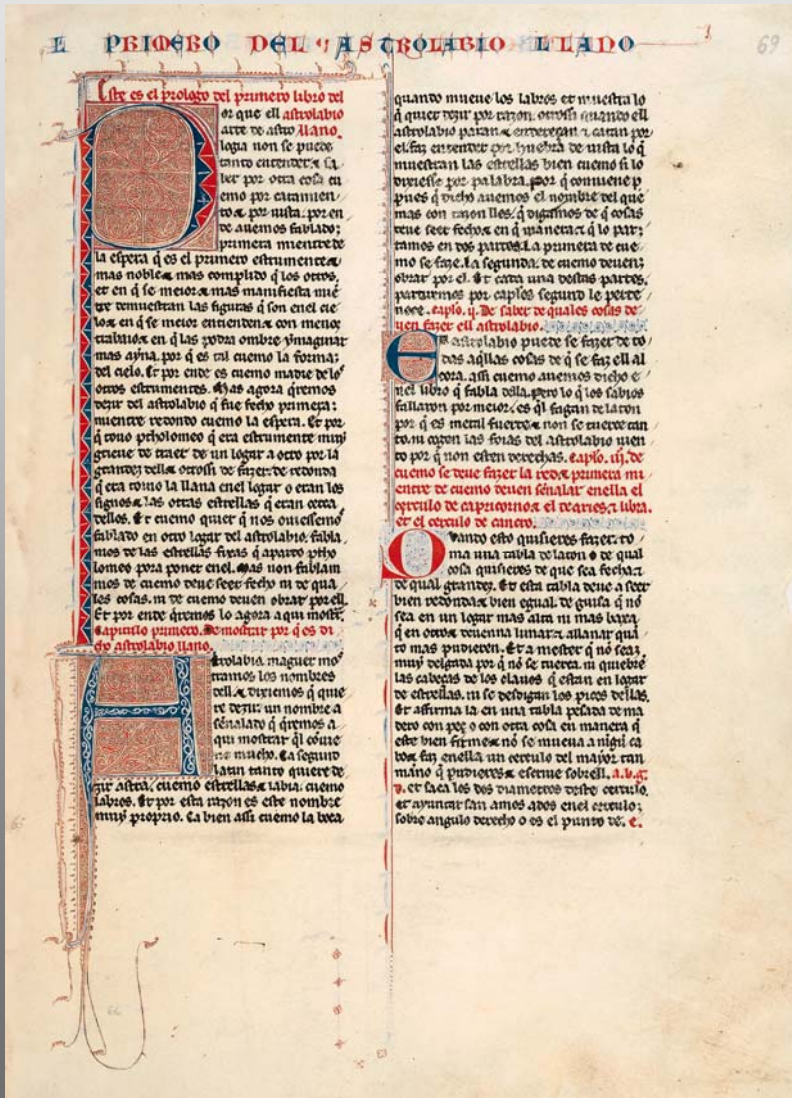 E PRIMERO DEL ASTROLABIO LLANO
69
Este es el prologo del primero libro del
or que ell astrolabio
arte de astro llano.
logia non se puede
tanto entender & sa
ber por otra cosa cu
emo por catamien
to & por uista. por en
de auemos fablado;
primera mientre de
la espera q̄ es el primero estrumente &
mas noble & mas complido q̄ los otros.
et en q̄ se meior & mas manifiesta mie
tre demuestran las figuras q̄ son enel cie
lo & en q̄ se meior entienden & con menor
trabaio & en q̄ las podra ombre ymaginar
mas ayna. por q̄ es tal cuemo la forma;
del cielo. Et por ende es cuemo madre de los
otros estrumentes. Mas agora q̄remos
dezir del astrolabio q̄ fue fecho primera;
mientre redondo cuemo la espera. Et por
q̄ touo ptholomeo q̄ era estrumente muy
grieue de traer de un logar a otro por la
grandez della & otrossi de fazer. de redonda
q̄ era torno la llana enel logar o eran los
signos & las otras estrellas q̄ eran cerca
dellos. Et cuemo quier q̄ nos ouiessemos
fablado en otro logar del astrolabio. fabla
mos de las estrellas fixas q̄ aparto ptho
lomeo pora poner enel. Mas non fablam
mos de cuemo deue seer fecho ni de qua
les cosas. ni de cuemo deuen obrar por ell.
Et por ende q̄remos lo agora aqui mostr.
Capitulo primero. De mostrar por q̄ es di
cho astrolabio llano.
Astrolabio. maguer mos
tramos los nombres
dell & dixiemos q̄ quie
re dezir. un nombre a
señalado q̄ q̄remos a
qui mostrar q̄l couie
ne mucho. Ca segund
latin tanto quiere de
zir astra. cuemo estrellas & labia. cuemo
labros. Et por esta razon es este nombre
muy proprio. Ca bien assi cuemo la boca
quando mueue los labros et muestra lo
q̄ quier dezir por razon. otrossi quando ell
astrolabio paran & endereçan & catan por
el. faz entender por huebra de uista lo q̄
muestran las estrellas bien cuemo si lo
dixiesse por palabra. Por q̄ conuiene p
pues q̄ dicho auemos el nombre del que
mas con razon lles. q̄ digamos de q̄ cosas
deue seer fecho & en q̄ manera & q̄ lo par;
tamos en dos partes. La primera de cue
mo se faze. La segunda. de cuemo deuen;
obrar por el. Et cada una destas partes.
partirmos por caplos segund le perte
nece. caplo. ij. De saber de quales cosas de
uen fazer ell astrolabio.
El astrolabio puede se fazer de to
das aq̄llas cosas de q̄ se faz ell al
cora. assi cuemo auemos dicho e
nel libro q̄ fabla della. pero lo q̄ los sabios
fallaron por meior. es q̄l fagan de laton
por q̄ es metal fuerte & non se tuerce tan
to. ni cogen las foias del astrolabio uien
to por q̄ non esten derechas. caplo. iij. de
cuemo se deue fazer la red & primera mi
entre de cuemo deuen señalar enella el
cerculo de capricornio & el de aries & libra.
et el cerculo de cancro.
Quando esto quisieres fazer. to
ma una tabla de laton o de qual
cosa quisieres de que sea fecha;
de qual grandez. Et esta tabla deue a seer
bien redonda & bien egual. de guisa q̄ no
sea en un logar mas alta ni mas baxa
q̄ en otro & deuenna lunar & allanar qua
to mas pudieren. Et a mester q̄ no sea;
muy delgada por q̄ no se tuerca. ni quiebre
las cabeças de los clauos q̄ estan en logar
de estrellas. ni se desdigan los picos dellas.
Et affirma la en una tabla pesada de ma
dero con pez o con otra cosa en manera q̄
este bien firme & no se mueua a nigu ca
bo & faz enella un cerculo del mayor tan
manno q̄ pudieres & escriue sobrell. a. b. g.
d. et saca los dos diametros deste cerculo.
et ayuntar san amos ados enel cerculo;
sobre angulo derecho o es el punto de. e.